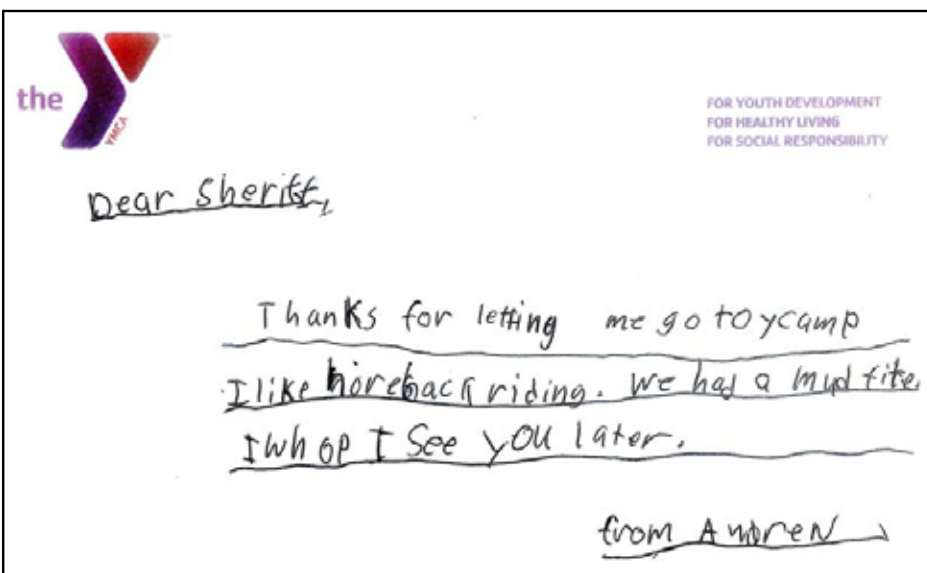 the
YMCA
FOR YOUTH DEVELOPMENT
FOR HEALTHY LIVING
FOR SOCIAL RESPONSIBILITY
Dear Sheriff,
Thanks for letting me go to ycamp
I like horeback riding. We had a mud fite.
I whop I See you later.
from Andrew